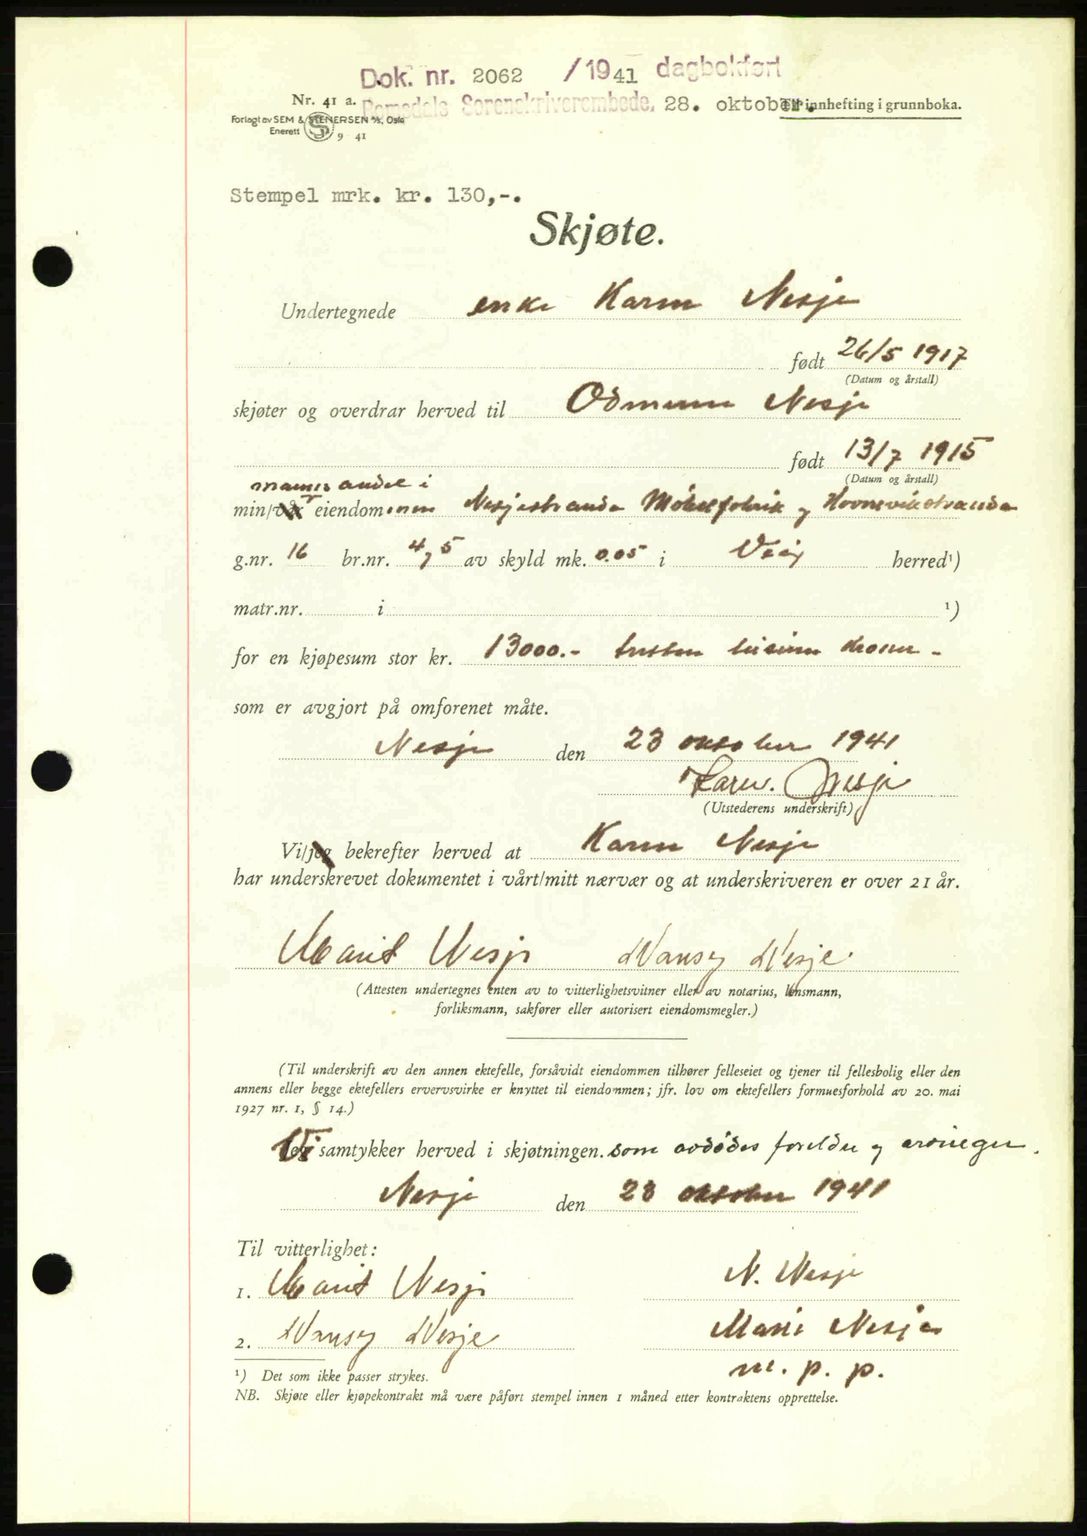 Dok. nr. 2062 /1941 dagbokført
Nr. 41 a. Romsdals Sorenskriverembede, 28. oktober. Til innhefting i grunnboka.
Forlagt av SEM & STENERSEN A/S, Oslo
Enerett S 9 41
Stempel mrk. kr. 130,-.
Skjøte.
Undertegnede enke Karen Nesje
født 26/5 1917
(Datum og årstall)
skjøter og overdrar herved til Odmunn Nesje
født 13/7 1915
(Datum og årstall)
manns andel i
min/vår eiendommen Nesjestranda Møbelfabrik og Hovnsvikstranda
g.nr. 16 br.nr. 4, 5 av skyld mk. 0.05 i Veøy herred¹)
matr.nr. i ¹)
for en kjøpesum stor kr. 13000.- tretten tusinn kroner -
som er avgjort på omforenet måte.
Nesje den 23 oktober 1941
Karen Nesje
(Utstederens underskrift)
Vi/jeg bekrefter herved at Karen Nesje
har underskrevet dokumentet i vårt/mitt nærvær og at underskriveren er over 21 år.
Marit Nesje Nansy Nesje
(Attesten undertegnes enten av to vitterlighetsvitner eller av notarius, lensmann,
forliksmann, sakfører eller autorisert eiendomsmegler.)
(Til underskrift av den annen ektefelle, forsåvidt eiendommen tilhører felleseiet og tjener til fellesbolig eller den
annens eller begge ektefellers ervervsvirke er knyttet til eiendommen; jfr. lov om ektefellers formuesforhold av 20. mai
1927 nr. 1, § 14.)
Vi samtykker herved i skjøtningen. som avdødes foreldre og arvinger.
Nesje den 23 oktober 1941
Til vitterlighet:
1. Marit Nesje N. Nesje
2. Nansy Nesje Marie Nesje
m. p. p.
¹) Det som ikke passer strykes.
NB. Skjøte eller kjøpekontrakt må være påført stempel innen 1 måned etter kontraktens opprettelse.